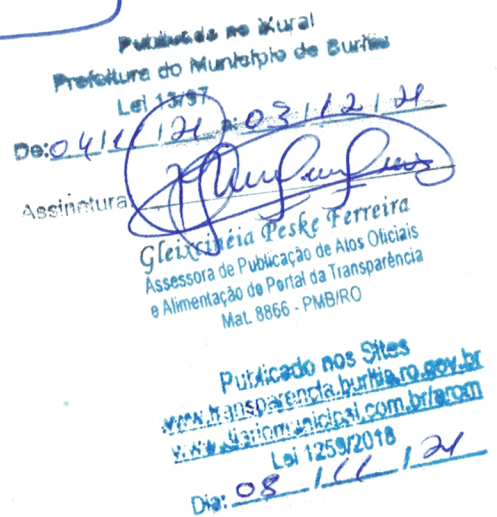 Publicado no Mural
Prefeitura do Município de Buritis
Lei 13/97
De: 04/11/21 a: 03/12/21
Assinatura
Gleixcinéia Peske Ferreira
Assessora de Publicação de Atos Oficiais
e Alimentação do Portal da Transparência
Mat. 8866 - PMB/RO
Publicado nos Sites
www.transparencia.buritis.ro.gov.br
www.diariomunicipal.com.br/arom
Lei 1259/2018
Dia: 08/11/21